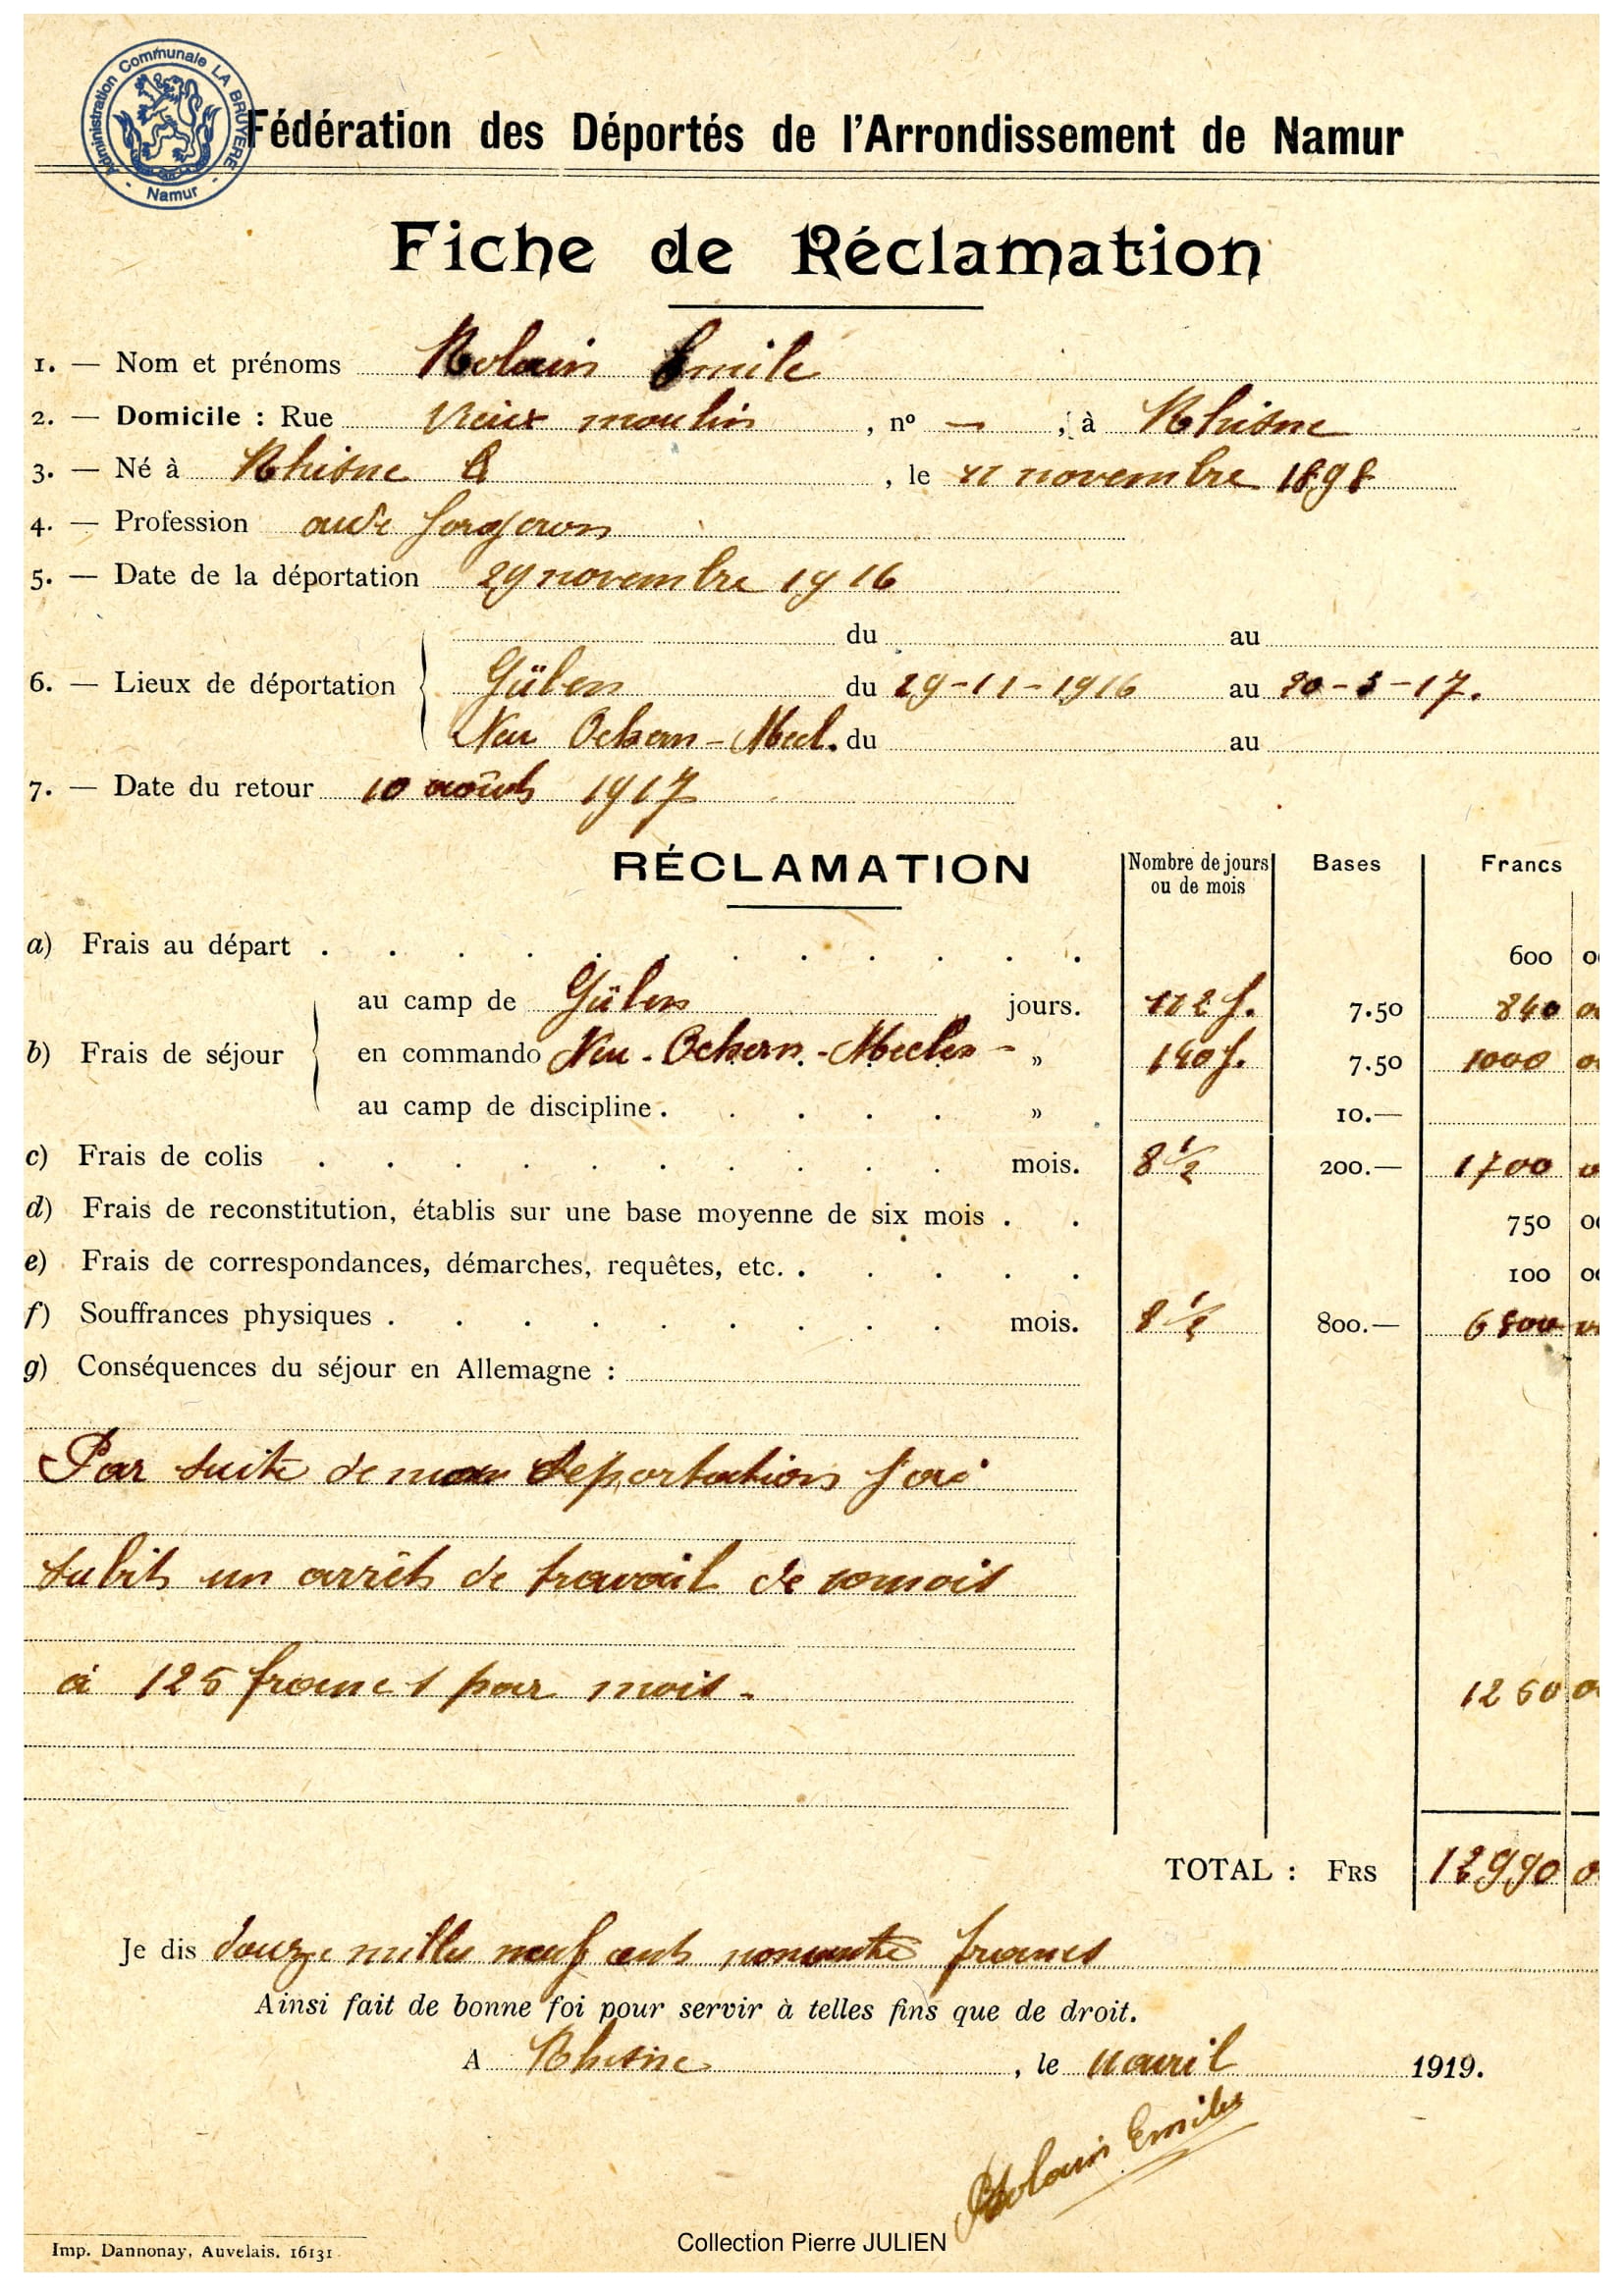 Administration Communale LA BRUYERE
- Namur -
Fédération des Déportés de l'Arrondissement de Namur
Fiche de Réclamation
1. — Nom et prénoms Rolain Emile
2. — Domicile : Rue Vieux moulin , nº — , à Rhisne
3. — Né à Rhisne , le 11 novembre 1898
4. — Profession aide forgeron
5. — Date de la déportation 29 novembre 1916
du au
6. — Lieux de déportation Güben du 29-11-1916 au 20-3-17.
Neu Ockern - Meckl. du au
7. — Date du retour 10 août 1917
RÉCLAMATION Nombre de jours ou de mois Bases Francs
a) Frais au départ . . . . . . . . . . . . 600
au camp de Güben jours. 112 j. 7.50 840
b) Frais de séjour en commando Neu - Ockern - » 140 j. 7.50 1000
au camp de discipline . . . . . » 10.—
c) Frais de colis . . . . . . . . . . mois. 8 1/2 200.— 1700
d) Frais de reconstitution, établis sur une base moyenne de six mois . . 750
e) Frais de correspondances, démarches, requêtes, etc. . . . . . 100
f) Souffrances physiques . . . . . . . . . mois. 8 1/2 800.— 6800
g) Conséquences du séjour en Allemagne :
Par suite de mon déportation j'ai
subit un arrêt de travail de 10 mois
à 125 francs par mois - 1250
TOTAL : FRS 12990
Je dis douze mille neuf cent nonante francs
Ainsi fait de bonne foi pour servir à telles fins que de droit.
A Rhisne , le 11 avril 1919.
Rolain Emile
Imp. Dannonay, Auvelais. 16131
Collection Pierre JULIEN